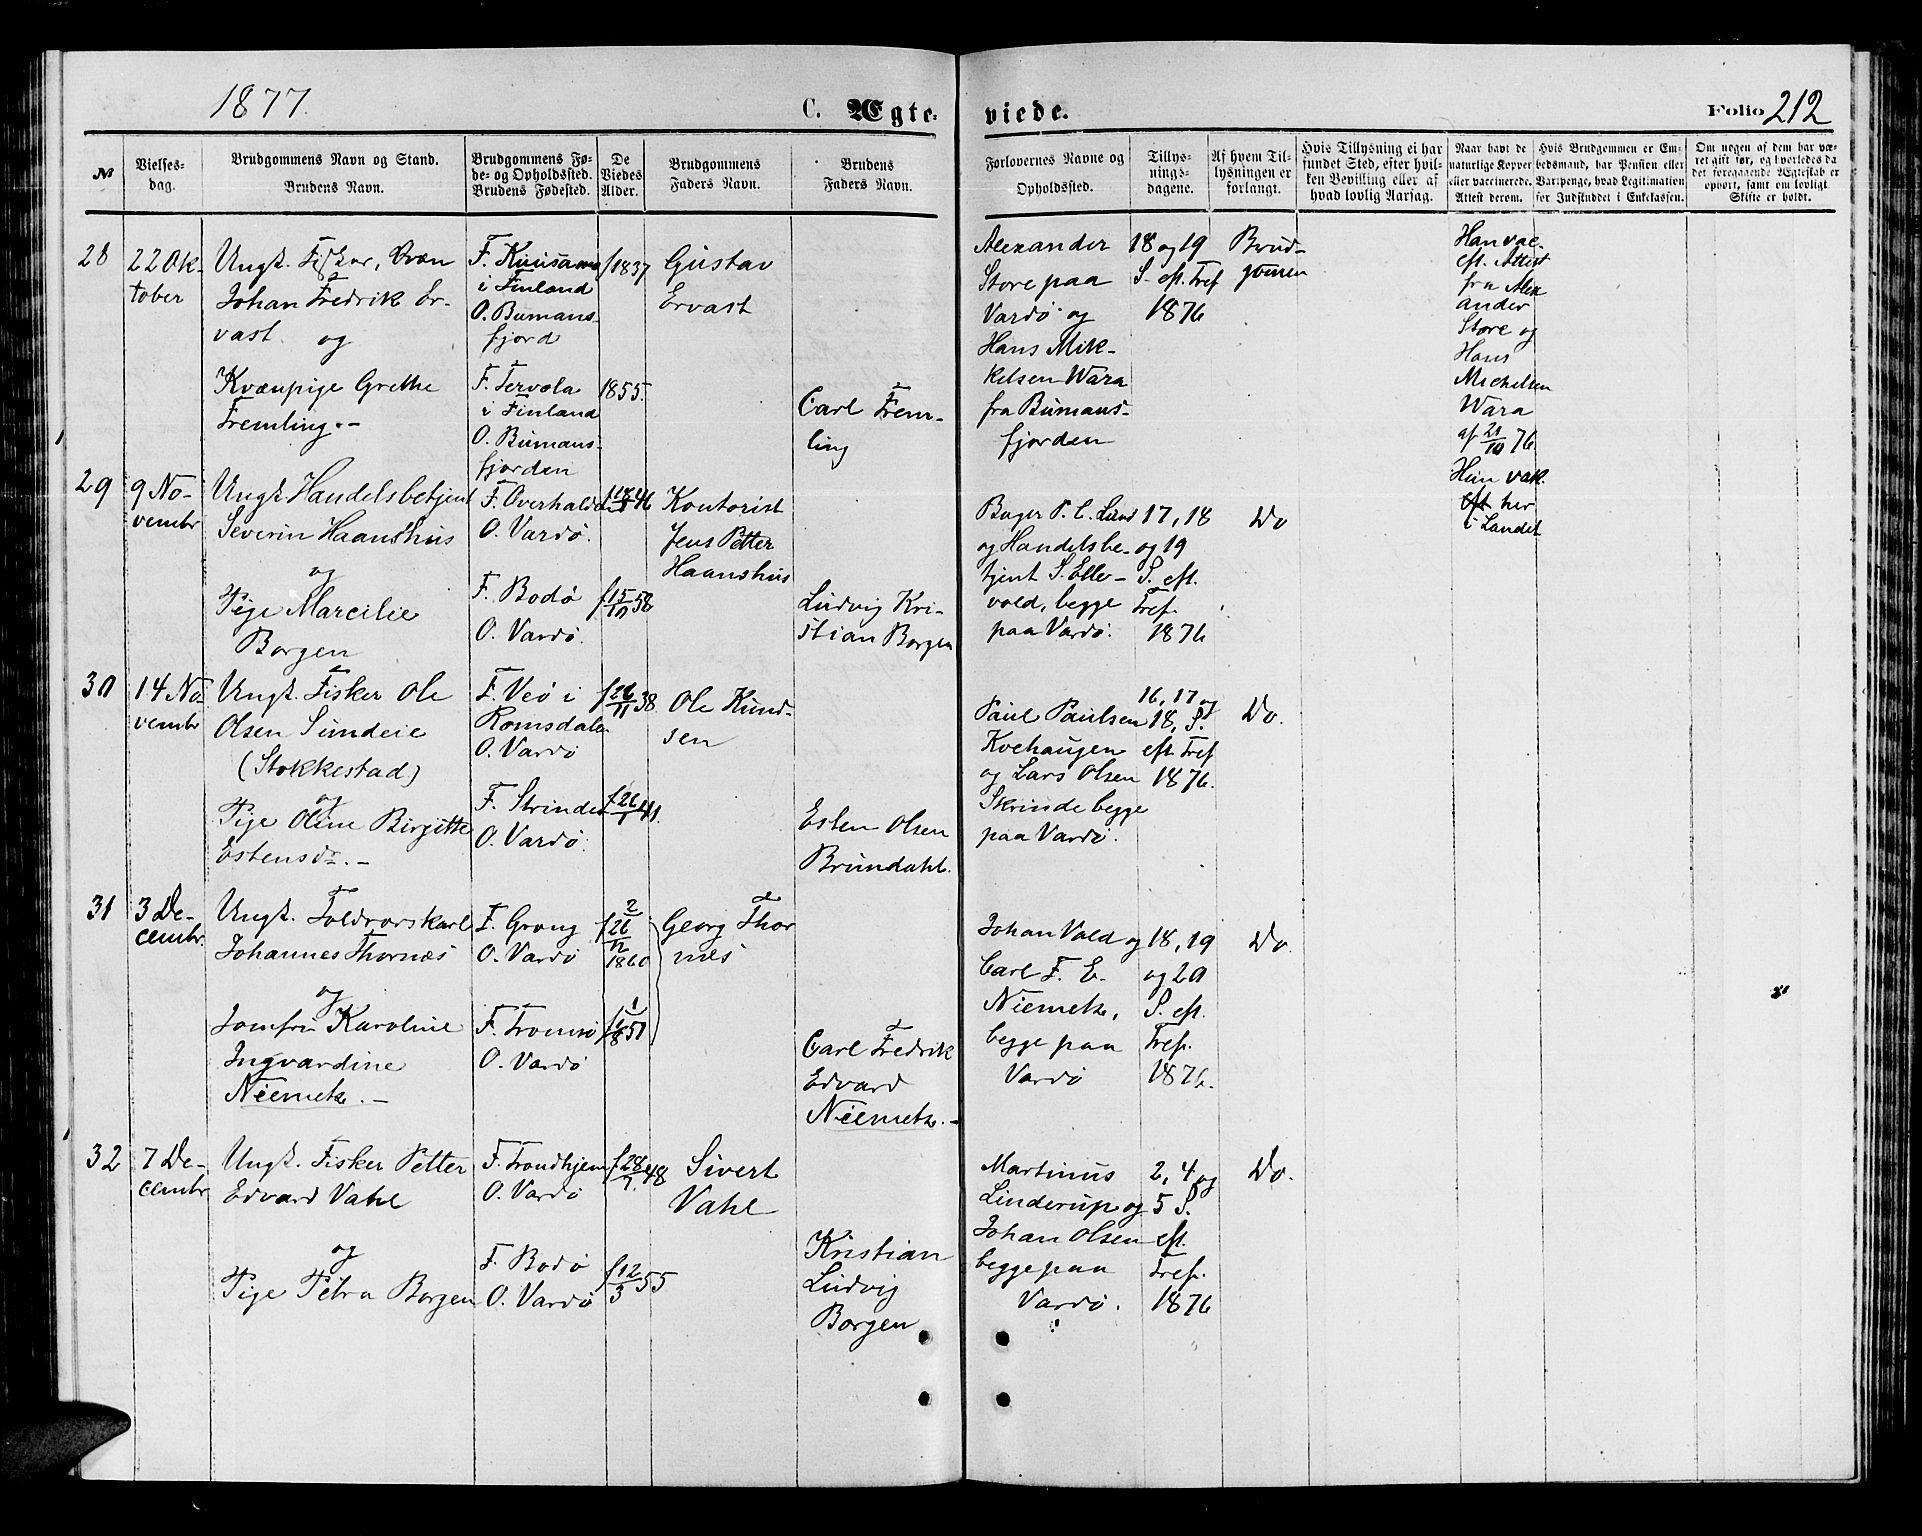 1877.
C. Ægte-
viede.
Folio 212
№
Vielses-
dag.
Brudgommens Navn og Stand.
Brudens Navn.
Brudgommens Fø-
de- og Opholdssted.
Brudens Fødested.
De
Viedes
Alder.
Brudgommens
Faders Navn.
Brudens
Faders Navn.
Forlovernes Navne og
Opholdssted.
Tillys-
nings-
dagene.
Af hvem Til-
lysningen er
forlangt.
Hvis Tillysning ei har
fundet Sted, efter hvil-
ken Bevilling eller af
hvad lovlig Aarsag.
Naar havt de
naturlige Kopper
eller vaccinerede.
Attest derom.
Hvis Brudgommen er Em-
bedsmand, har Pension eller
Vartpenge, hvad Legitimation
for Indskuddet i Enkekassen.
Om nogen af dem har væ-
ret gift før, og hvorledes da
det foregaaende Ægteskab er
ophørt, samt om lovligt
Skifte er holdt.
28
22 Ok-
tober
Ungk. Fisker, Qvæn
Johan Fredrik Er-
vast og
Kvænpige Grethe
Fremling.-
F. Kuusamo
i Finland
O. Bumans-
fjord
F. Tervola
i Finland
O. Bumans-
fjorden
f 1837
1855.
Gustav
Ervast
Carl Frem-
ling
Alexander
Store paa
Vardø og
Hans Mik-
kelsen Wara
fra Bumans-
fjorden
18 og 19
S. eft. Tref
1876
Brud-
gommen
Han vac.
eft. Attest
fra Alex
ander
Store og
Hans
Michelsen
Wara
af 21/10 76.
Hun vak.
eft her
i Landet
29
9 No-
vembr
Ungk. Handelsbetjent
Severin Haanshus
og
Pige Marcilie
Borgen
F. Overhalden
O. Vardø.
F. Bodø
O. Vardø.
46
f 15/10 58
Kontorist
Jens Petter
Haanshus
Ludvig Kri-
stian Borgen
Bager P. C. Lund
og Handelsbe-
tjent S. Elle-
vold, begge
paa Vardø.
17, 18
og 19
S. eft.
Tref.
1876
Do
30
14 No
vembr
Ungk. Fisker Ole
Olsen Sundeie
(Stokkestad)
og
Pige Oline Birgitte
Estensdr. -
F. Veø i
Romsdalen
O. Vardø
F. Strinden
O. Vardø.
f 26/11 38
f 26/1 41.
Ole Knud-
sen
Esten Olsen
Brundahl.
Paul Paulsen
Kvehaugen
og Lars Olsen
Skrinde begge
paa Vardø.
16, 17 og
18, S.
eft Tref
1876.
Do.
31
3 De-
cembr.
Ungk. Toldrorskarl
Johannes Thornæs
og
Jomfru Karoline
Ingvardine
Niemetz. -
F. Grong
O. Vardø
F. Tromsø
O. Vardø
2
f 26/12
1860
1
Georg Thor
næs
Carl Fredrik
Edvard
Niemetz. -
Johan Vold og
Carl F. E.
Niemetz,
begge paa
Vardø
18, 19
og 20
S. eft.
Tref.
1876.
Do.
32
7 De-
cembr
Ungk. Fisker Petter
Edvard Vahl
og
Pige Petra Borgen
F. Trondhjem
O. Vardø
F. Bodø
O. Vardø
f 28/7. 48
f 12/3 55
Sivert
Vahl
Kristian
Ludvig
Borgen
Martinus
Linderup og
Johan Olsen
begge paa
Vardø.
2, 4 og
5 S.
eft.
Tref.
1876
Do.